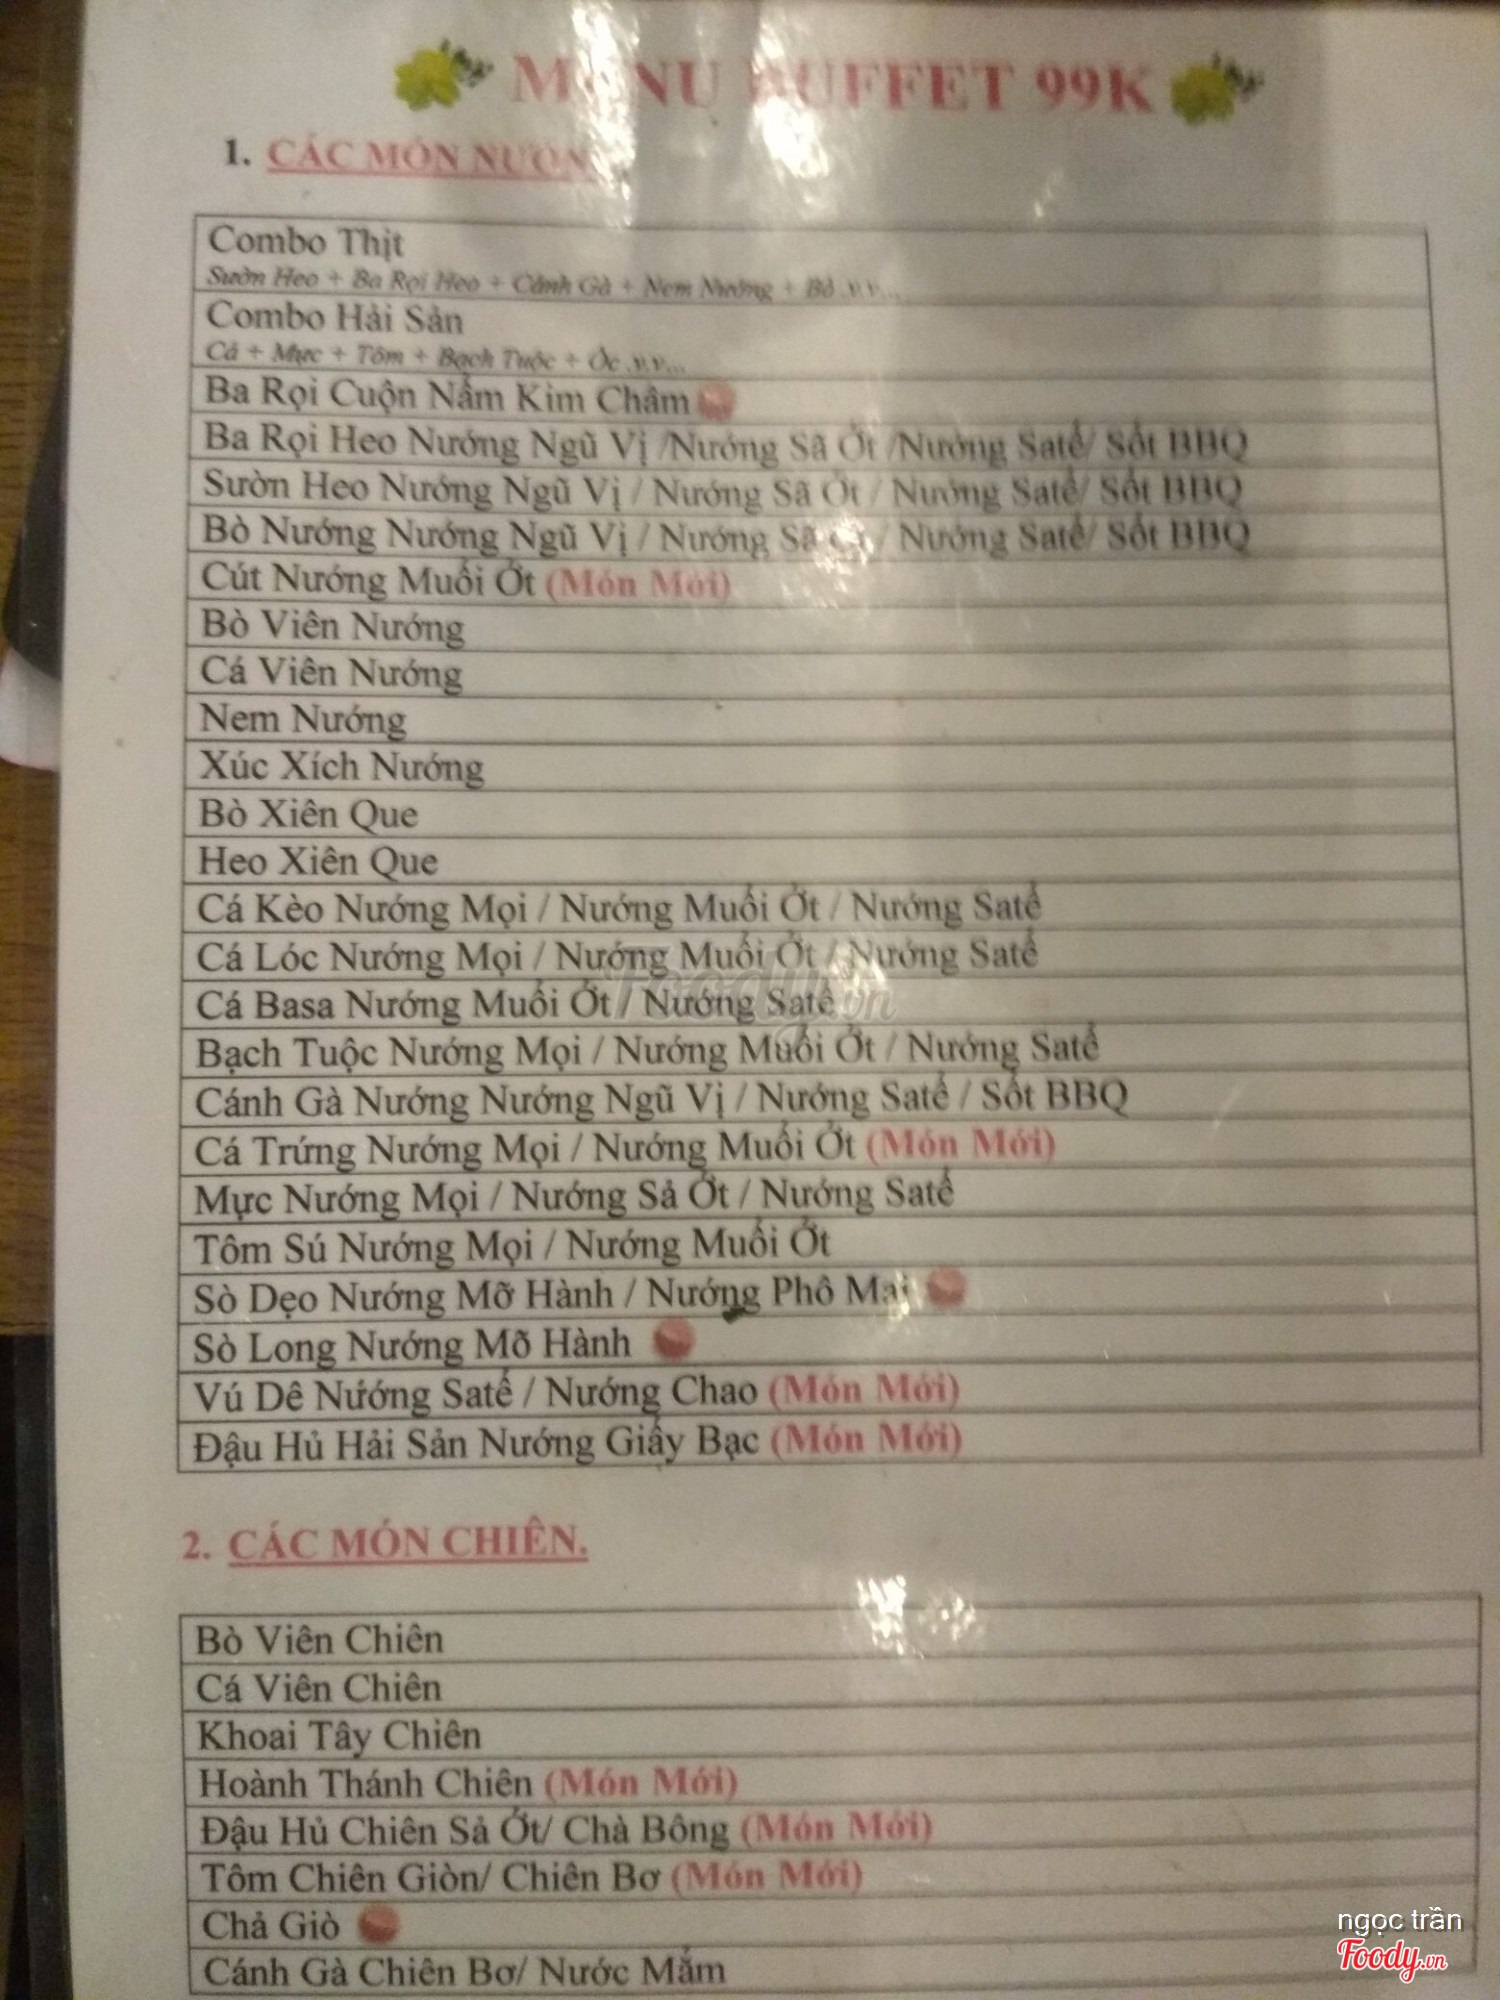 MENU BUFFET 99K
1. CÁC MÓN NƯỚN
Combo Thịt
Sườn Heo + Ba Rọi Heo + Cánh Gà + Nem Nướng + Bò .v.v...
Combo Hải Sản
Cá + Mực + Tôm + Bạch Tuộc + Ốc .v.v...
Ba Rọi Cuộn Nấm Kim Châm
Ba Rọi Heo Nướng Ngũ Vị /Nướng Sã Ớt /Nướng Satế/ Sốt BBQ
Sườn Heo Nướng Ngũ Vị / Nướng Sã Ớt / Nướng Satế/ Sốt BBQ
Bò Nướng Nướng Ngũ Vị / Nướng Sã Ớt / Nướng Satế/ Sốt BBQ
Cút Nướng Muối Ớt (Món Mới)
Bò Viên Nướng
Cá Viên Nướng
Nem Nướng
Xúc Xích Nướng
Bò Xiên Que
Heo Xiên Que
Cá Kèo Nướng Mọi / Nướng Muối Ớt / Nướng Satế
Cá Lóc Nướng Mọi / Nướng Muối Ớt / Nướng Satế
Cá Basa Nướng Muối Ớt / Nướng Satế
Foody.vn
Bạch Tuộc Nướng Mọi / Nướng Muối Ớt / Nướng Satế
Cánh Gà Nướng Nướng Ngũ Vị / Nướng Satế / Sốt BBQ
Cá Trứng Nướng Mọi / Nướng Muối Ớt (Món Mới)
Mực Nướng Mọi / Nướng Sả Ớt / Nướng Satế
Tôm Sú Nướng Mọi / Nướng Muối Ớt
Sò Dẹo Nướng Mỡ Hành / Nướng Phô Mai
Sò Long Nướng Mỡ Hành
Vú Dê Nướng Satế / Nướng Chao (Món Mới)
Đậu Hủ Hải Sản Nướng Giấy Bạc (Món Mới)
2. CÁC MÓN CHIÊN.
Bò Viên Chiên
Cá Viên Chiên
Khoai Tây Chiên
Hoành Thánh Chiên (Món Mới)
Đậu Hủ Chiên Sả Ớt/ Chà Bông (Món Mới)
Tôm Chiên Giòn/ Chiên Bơ (Món Mới)
Chả Giò
Cánh Gà Chiên Bơ/ Nước Mắm
ngọc trần
Foody.vn